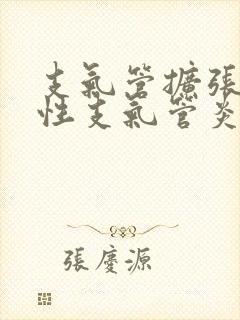 支氣管擴張
性支氣管炎
張慶源